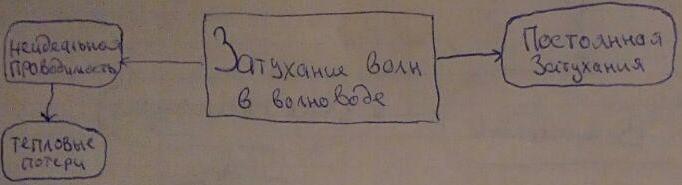 Неидеальная
проводимость
Затухание волн
в волноводе
Постоянная
Затухания
тепловые
потери